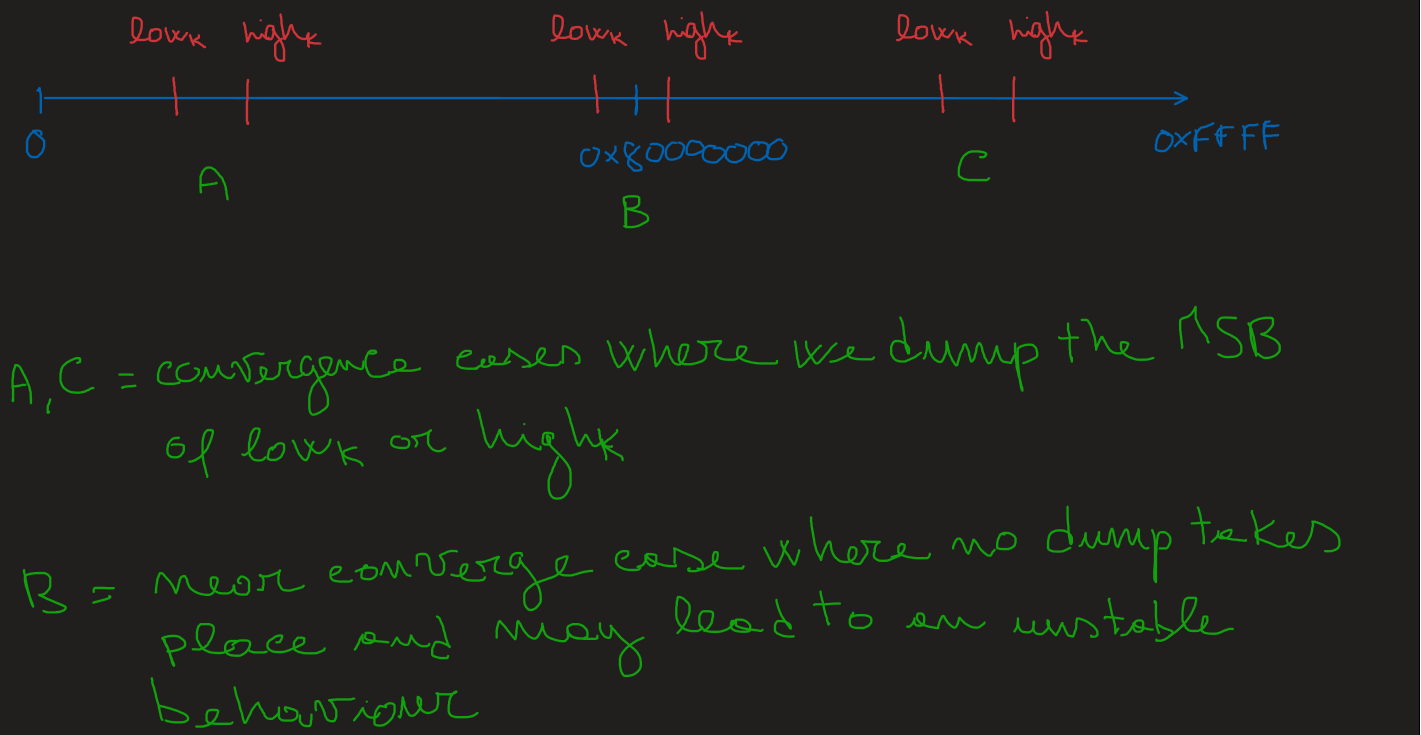 low_K high_K low_K high_K low_K high_K
0 0x80000000 0xFFFF
A B C
A, C = convergence cases where we dump the MSB
of low_K or high_K
B = near converge case where no dump takes
place and may lead to an unstable
behaviour